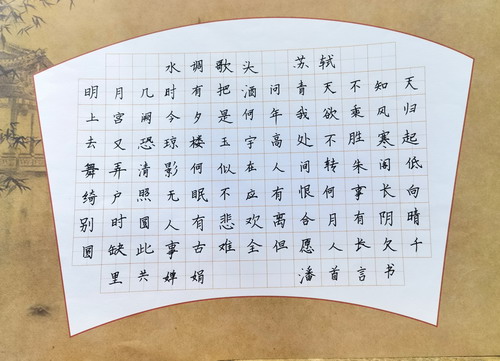 水调歌头 苏轼
明月几时有把酒问青天不知天
上宫阙今夕是何年我欲乘风归
去又恐琼楼玉宇高处不胜寒起
舞弄清影何似在人间转朱阁低
绮户照无眠不应有恨何事长向
别时圆人有悲欢离合月有阴晴
圆缺此事古难全但愿人长久千
里共婵娟 潘首言书